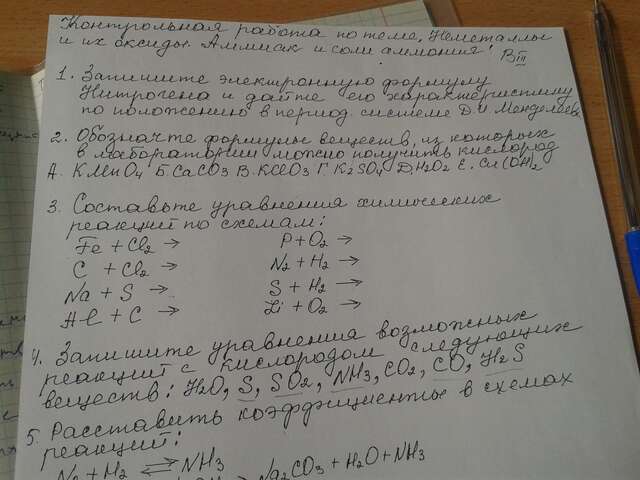 Контрольная работа по теме „Неметаллы
и их оксиды. Аммиак и соли аммония"
В III
1. Запишите электронную формулу
Нитрогена и дайте его характеристику
по положению в период системе Д.И Менделеева
2. Обозначте формулы веществ, из которых
в лаборатории можно получить кислород
А. KMnO4 Б. CaCO3 В. KClO3 Г. K2SO4 Д H2O2 Е. Cu(OH)2
3. Составьте уравнения химических
реакций по схемам:
Fe + Cl2 → P + O2 →
C + Cl2 → N2 + H2 →
Na + S → S + H2 →
Al + C → Li + O2 →
4. Запишите уравнения возможных
реакций с кислородом следующих
веществ: H2O, S, SO2, NH3, CO2, CO, H2S
5. Расставить коэффициенты в схемах
реакций:
N2 + H2 ⇄ NH3
→ Na2CO3 + H2O + NH3